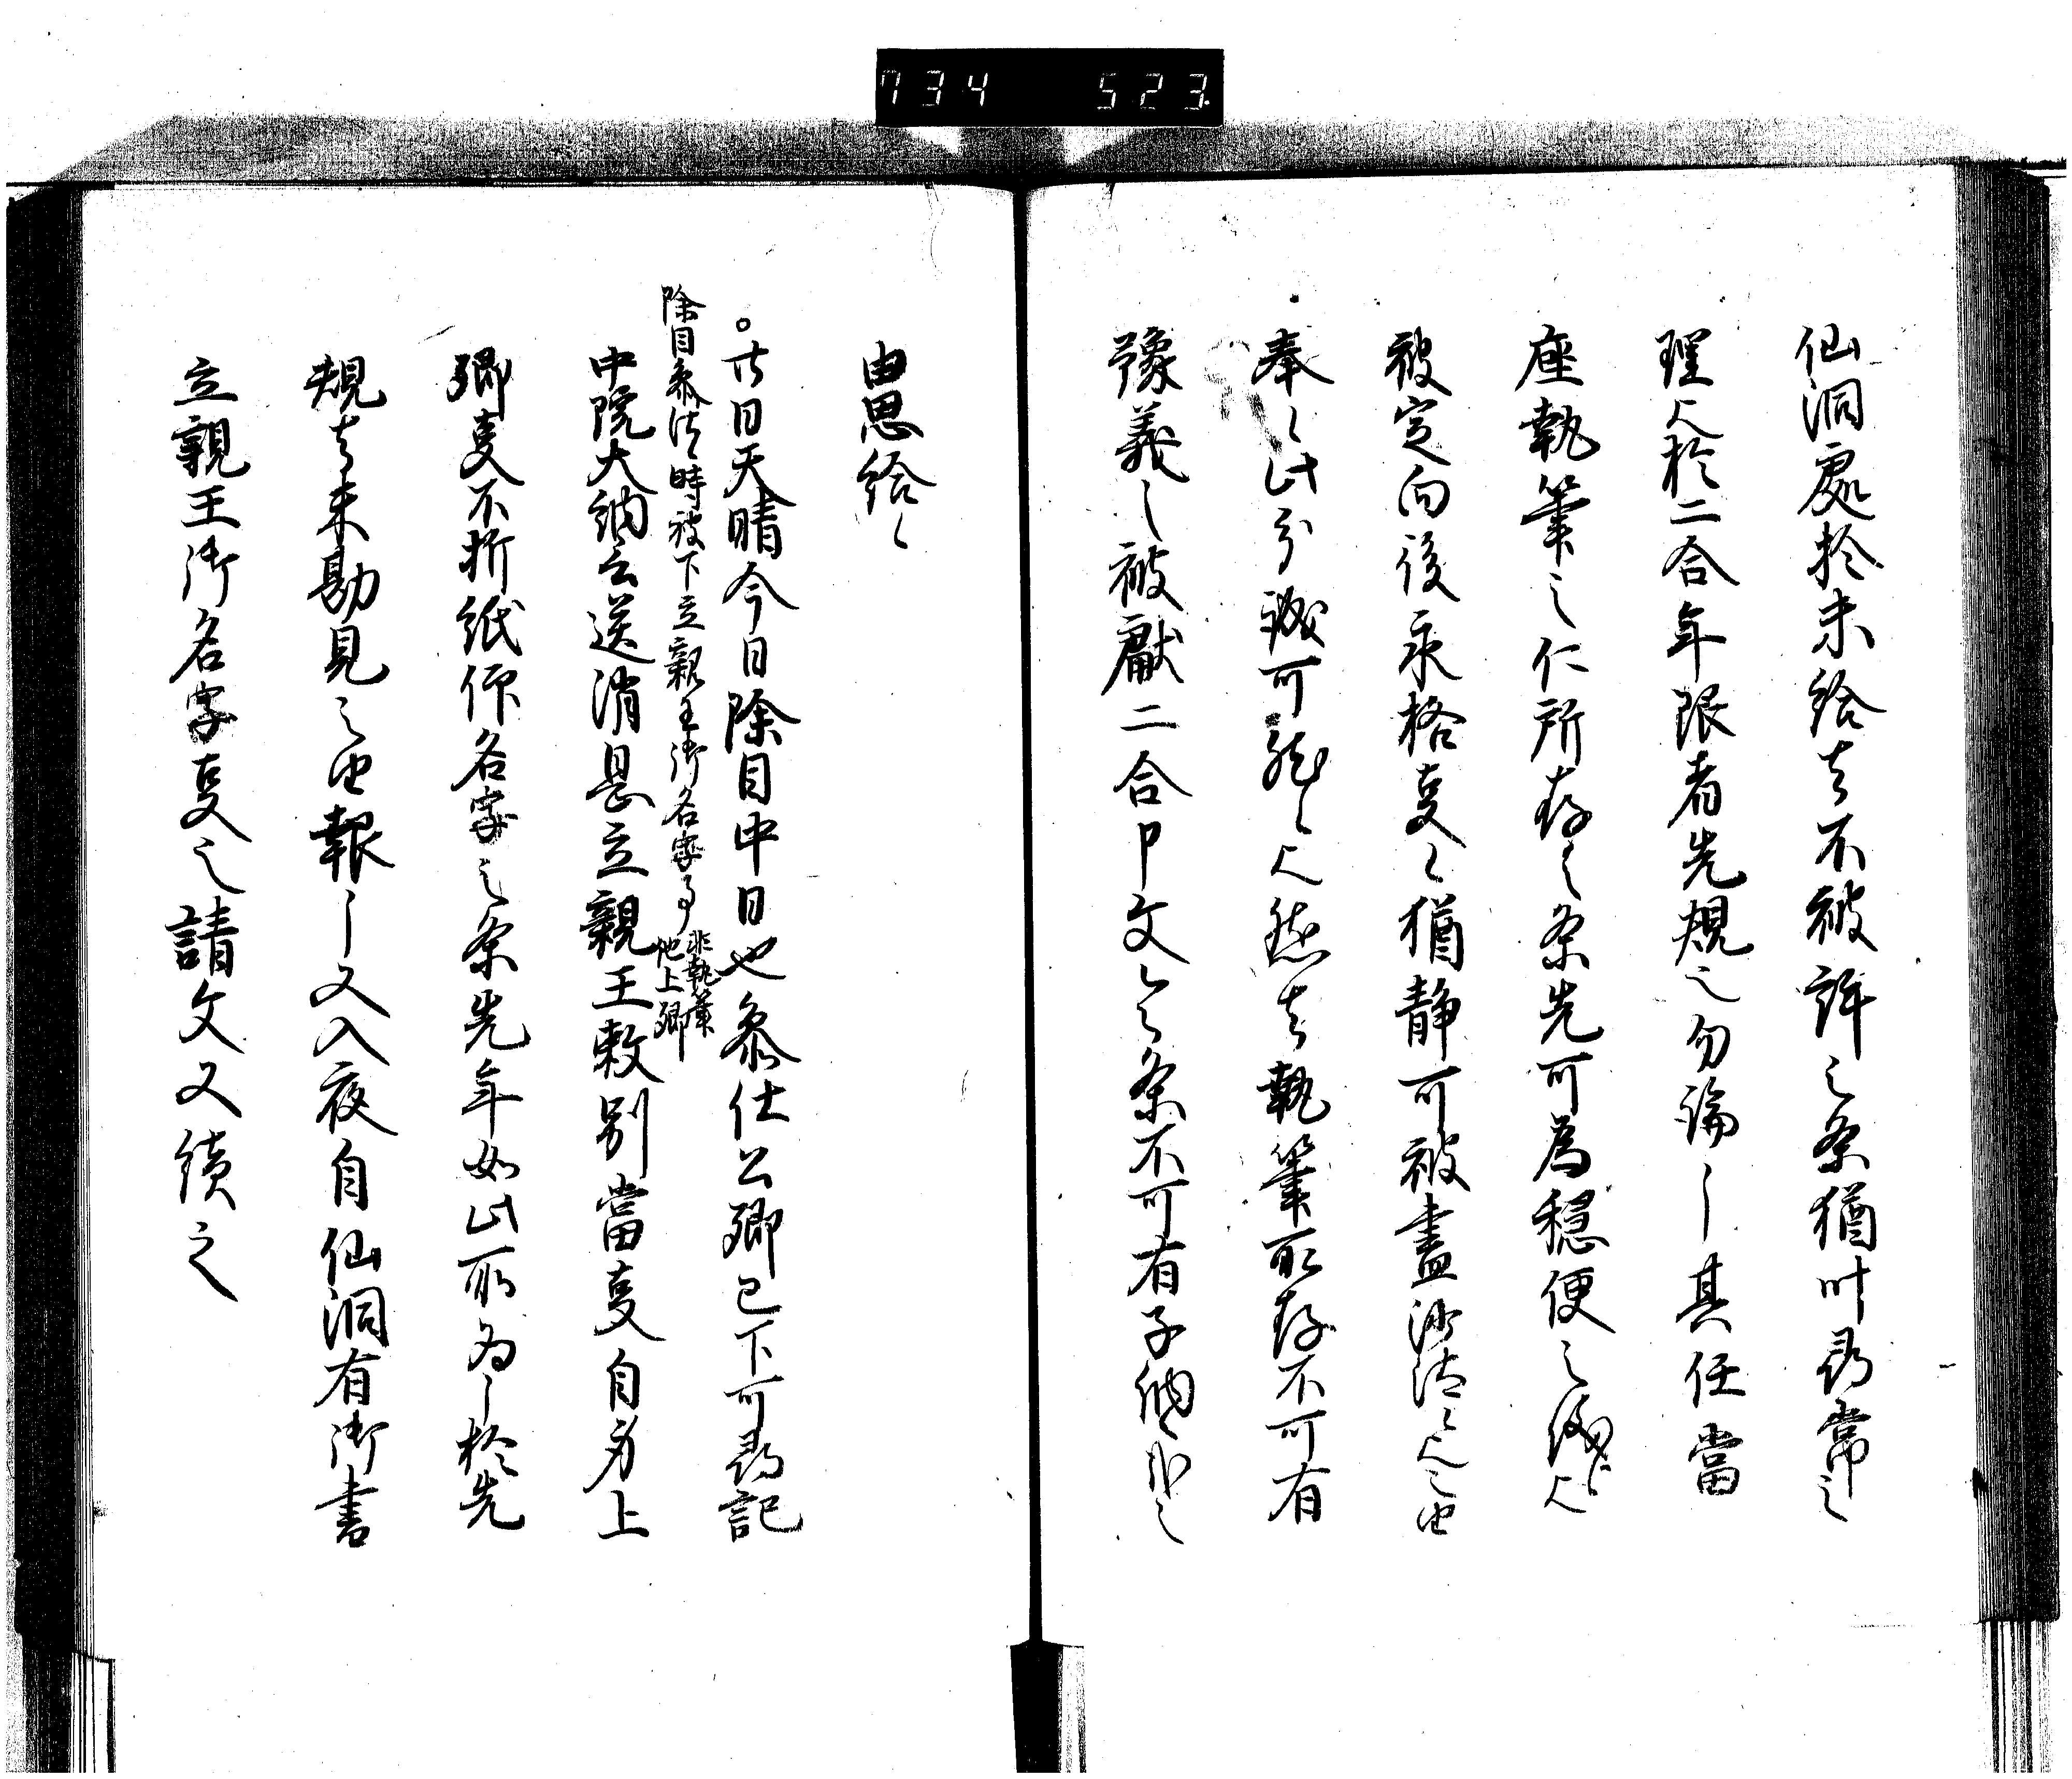 734 523
仙洞處於未給者不被許之条猶叶尋常之
理歟於二合年限者先規之勿論也其任當
座執筆之仁所存之条先可為穏便之儀歟
被定向後永格事者猶静可被盡沙汰歟之由
奉之此分誠可然歟然者執筆所存不可有
豫義之被獻二合申文之条不可有子細
由思給之
。廿日天晴今日除目中日也参仕公卿已下可尋記
除目参仕時被下立親王御名字事非執筆他上卿
中院大納言送消息立親王敕別當事自身上
卿事不折紙仰名字之条先年如此所為也於先
規者未勘見之由報了又入夜自仙洞有御書
立親王御名字事也請文又續之